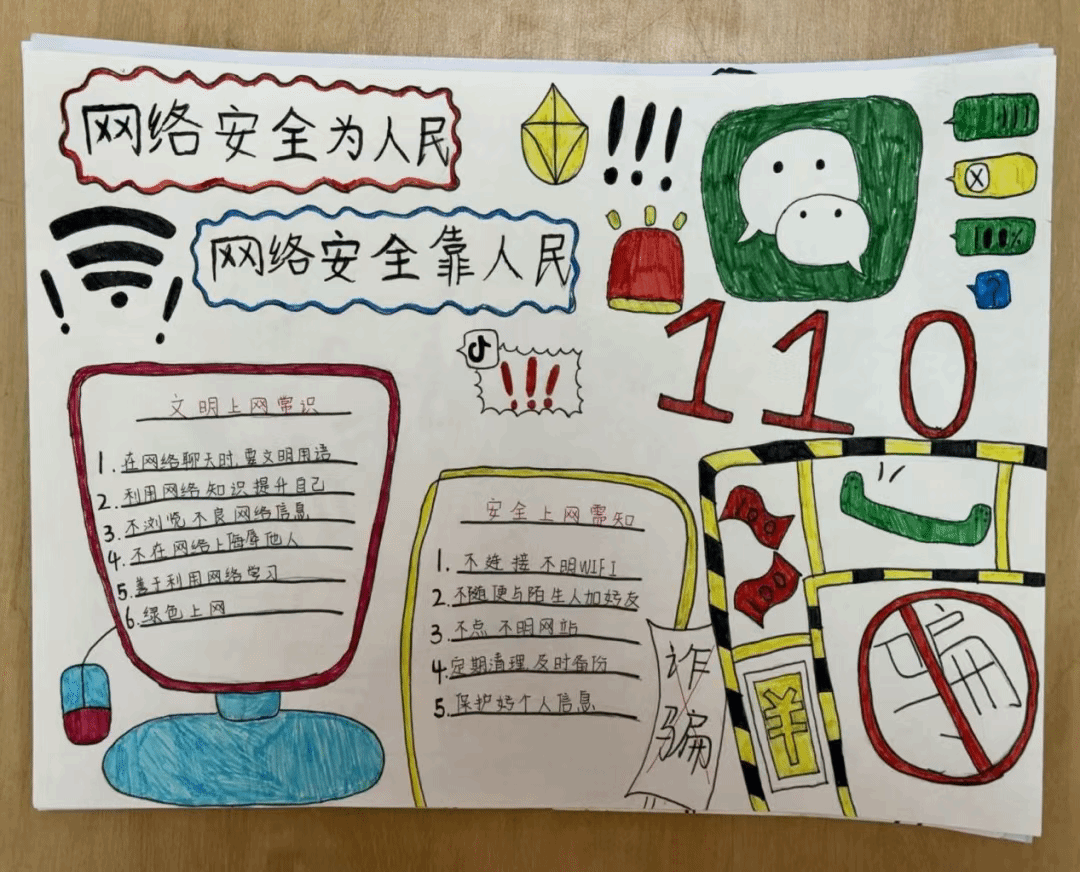 网络安全为人民
网络安全靠人民
!!!
110
100%
?
!!!
文明上网常识
1. 在网络聊天时,要文明用语
2. 利用网络知识提升自己
3. 不浏览不良网络信息
4. 不在网络上侮辱他人
5. 善于利用网络学习
6. 绿色上网
安全上网需知
1. 不连接不明WIFI
2. 不随便与陌生人加好友
3. 不点不明网站
4. 定期清理及时备份
5. 保护好个人信息
诈骗
100
100
¥
骗